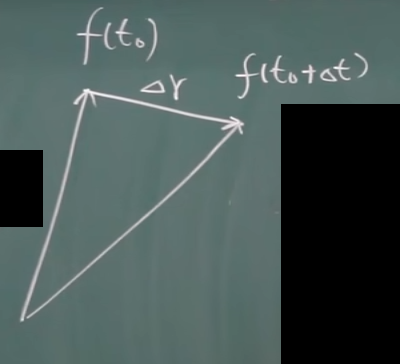 f(t₀)
Δr
f(t₀+Δt)